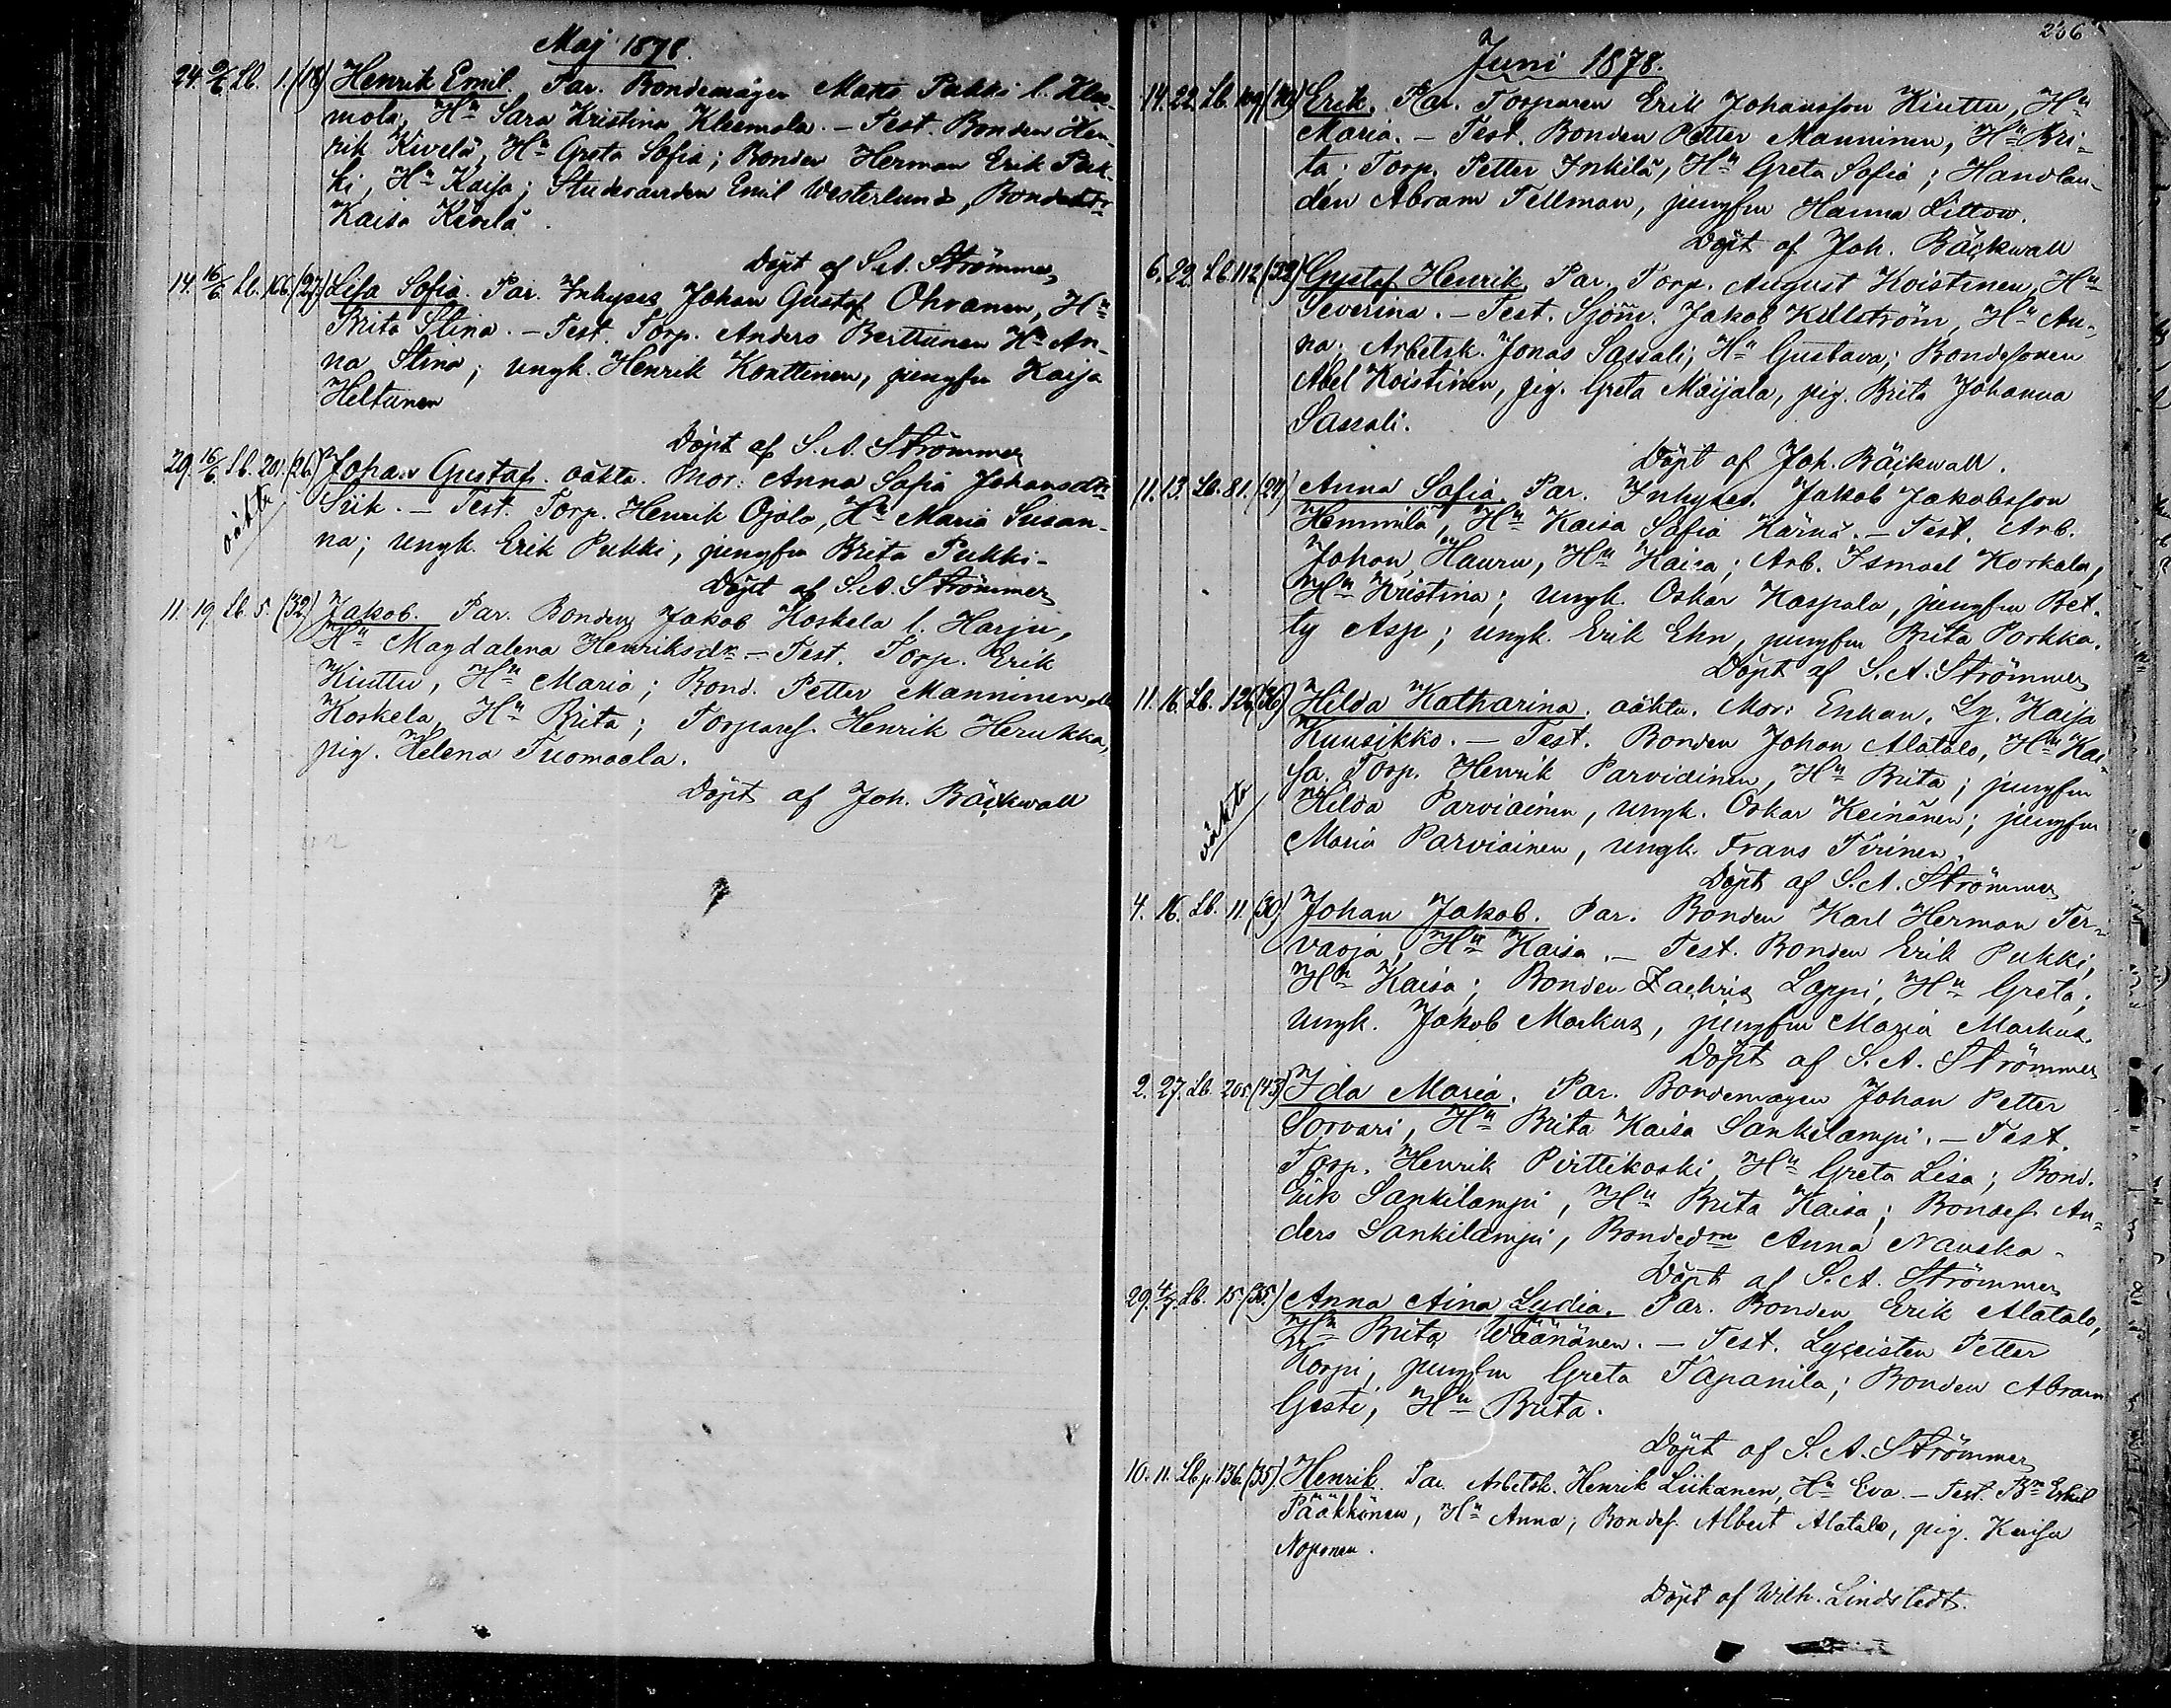 Maj 1878.
24. 9/6 Lb. 1. (18) Henrik Emil. Par. Bondemågen Matts Pukki l. Klee-
mola, Hu Sara Kristina Kleemola. – Test. Bonden Hen-
rik Kivelä, Hu Greta Sofia; Bonden Herman Erik Puk-
ki, Hu Kaisa; Studeranden Emil Westerlund, Bondedr
Kaisa Kivelä.
Döpt af S. A. Strömmer
14. 16/6 Lb. 166. (27) Lisa Sofia. Par. Inhyses Johan Gustaf Ohvanen, Hu
Brita Stina. – Test. Torp. Anders Berttunen Hu An-
na Stina; ungk. Henrik Konttinen, jungfru Kaisa
Heltunen
Döpt af S. A. Strömmer
29. 16/6 Lb. 201. (26) Johan Gustaf. oäkta. Mor: Anna Sofia Johansdr
oäkta
Siik. – Test. Torp. Henrik Ojala, Hu Maria Susan-
na; ungk. Erik Pukki, jungfru Brita Pukki –
Döpt af S. A. Strömmer
11. 19. Lb. 5. (32) Jakob. Par. Bonden Jakob Koskela l. Harju,
Hu Magdalena Henriksdr. – Test. Torp. Erik
Kiuttu, Hu Maria; Bond. Petter Manninen ell.
Koskela, Hu Brita; Torparef. Henrik Herukka,
pig. Helena Tuomaala.
Döpt af Joh. Bäckwall
236
Juni 1878.
14. 22. Lb. 109 Erik. Par. Torparen Erik Johansson Kiuttu, Hu
Maria. – Test. Bonden Petter Manninen, Hu Bri-
ta; Torp. Petter Inkilä, Hu Greta Sofia; Handlan-
den Abram Tellman, jungfru Hanna Littow.
Döpt af Joh. Bäckwall
6. 22. Lb. 112. (32) Gustaf Henrik. Par. Torp. August Koistinen, Hu
Severina. – Test. Sjöm. Jakob Källström, Hu An-
na; Arbetsk. Jonas Sassali, Hu Gustava; Bondesonen
Abel Koistinen, pig. Greta Maijala, pig. Brita Johanna
Sassali.
Döpt af Joh. Bäckwall.
11. 13. Lb. 81. (24) Anna Sofia. Par. Inhyses. Jakob Jakobsson
Hemmilä, Hu Kaisa Sofia Kärnä. – Test. Arb.
Johan Hauru, Hu Kaisa; Arb. Ismael Korkala,
Hu Kristina; ungk. Oskar Kaspala, jungfru Bet-
ty Asp; ungk. Erik Ehn, jungfru Brita Porkka.
Döpt af S. A. Strömmer
11. 16. Lb. 126. (36) Hilda Katharina. oäkta. Mor: Enkan. Ly. Kaisa
Kuusikko. – Test. Bonden Johan Alatalo, Hu Kai-
sa. Torp. Henrik Parviainen, Hu Brita; jungfru
oäkta
Hilda Parviainen, ungk. Oskar Keinänen; jungfru
Maria Parviainen, ungk. Frans Tirinen.
Döpt af S. A. Strömmer
4. 16. Lb. 11. (30) Johan Jakob. Par. Bonden Karl Herman Ter-
vaoja, Hu Kaisa. – Test. Bonden Erik Pukki,
Hu Kaisa; Bonden Zachris Lappi, Hu Greta;
ungk. Jakob Markus, jungfru Maria Markus.
Döpt af S. A. Strömmer
2. 27. Lb. 205. (43) Ida Maria. Par. Bondemågen Johan Petter
Sorvari, Hu Brita Kaisa Sankilampi. – Test.
Torp. Henrik Pirttikoski, Hu Greta Lisa; Bond.
Erik Sankilampi, Hu Brita Kaisa; Bondes. An-
ders Sankilampi, Bondedr Anna Nauska –
Döpt af S. A. Strömmer
29. 4/7. Lb. 15. (35.) Anna Aina Lydia. Par. Bonden Erik Alatalo,
Hu Brita Wäänänen. – Test. Lyceisten Petter
Korpi, jungfru Greta Tapanila; Bonden Abram
Gesti, Hu Brita.
Döpt af S. A. Strömmer
10. 11. Lb p. 136. (35). Henrik. Par. Arbetsk. Henrik Liikanen, Hu Eva. – Test. Bn
Pääkkönen, Hu Anna; Bondes. Albert Alatalo, pig. Kaisa
Noponen.
Döpt af Wilh. Lindstedt.